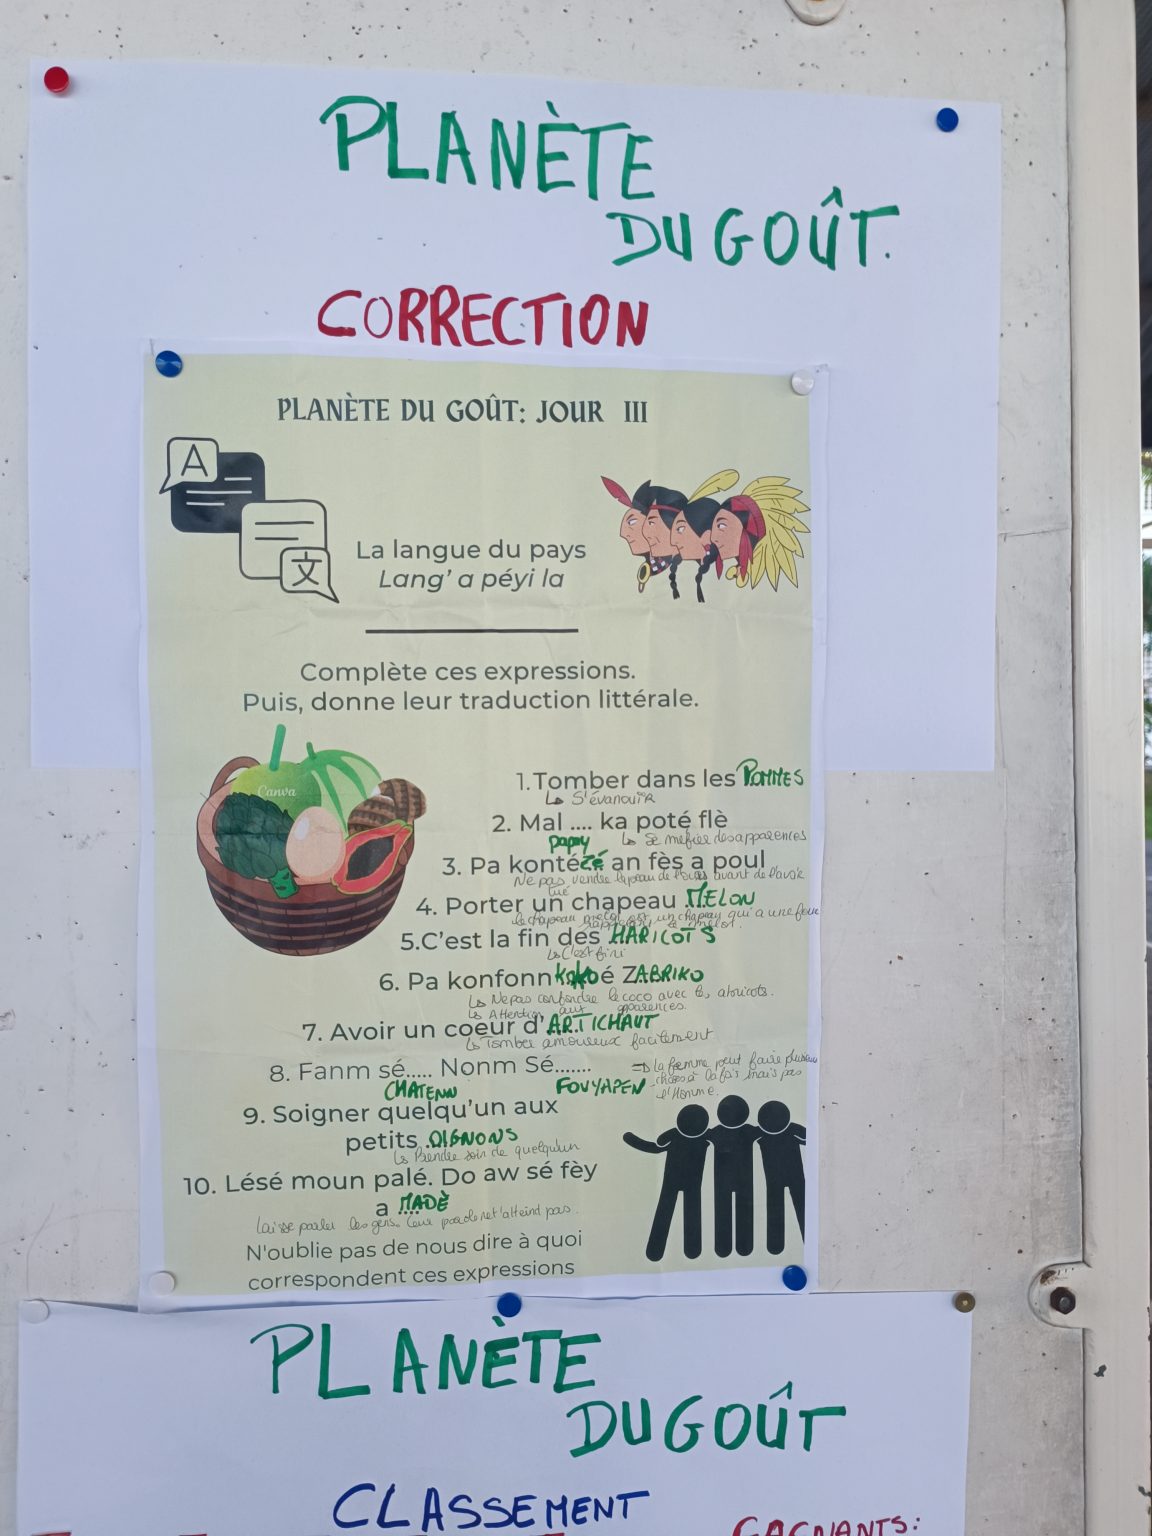 PLANÈTE
DU GOÛT.
CORRECTION
PLANÈTE DU GOÛT: JOUR III
A
文
La langue du pays
Lang' a péyi la
Complète ces expressions.
Puis, donne leur traduction littérale.
Canva
1.Tomber dans les POMMES
↳ S'évanouir
2. Mal .... ka poté flè
papay ↳ Se méfier des apparences
3. Pa kontézé an fès a poul
Ne pas vendre la peau de l'ours avant de l'avoir
tué
4. Porter un chapeau MELON
le chapeau melon est un chapeau qui a une forme
5.C'est la fin des HARICOTS
↳ C'est fini
6. Pa konfonn koko é ZABRIKO
↳ Ne pas confondre le coco avec les abricots.
↳ Attention aux apparences.
7. Avoir un coeur d'ARTICHAUT
↳ Tomber amoureux facilement
8. Fanm sé..... Nonm Sé.......
CHATENN FOUYAPEN
⇒ la femme peut faire plusieurs
choses à la fois mais pas
l'Homme.
9. Soigner quelqu'un aux
petits OIGNONS
↳ Prendre soin de quelqu'un
10. Lésé moun palé. Do aw sé fèy
a MADÈ
Laisse parler les gens. Leur parole ne t'atteint pas.
N'oublie pas de nous dire à quoi
correspondent ces expressions
PLANÈTE
DU GOÛT
CLASSEMENT
GAGNANTS: